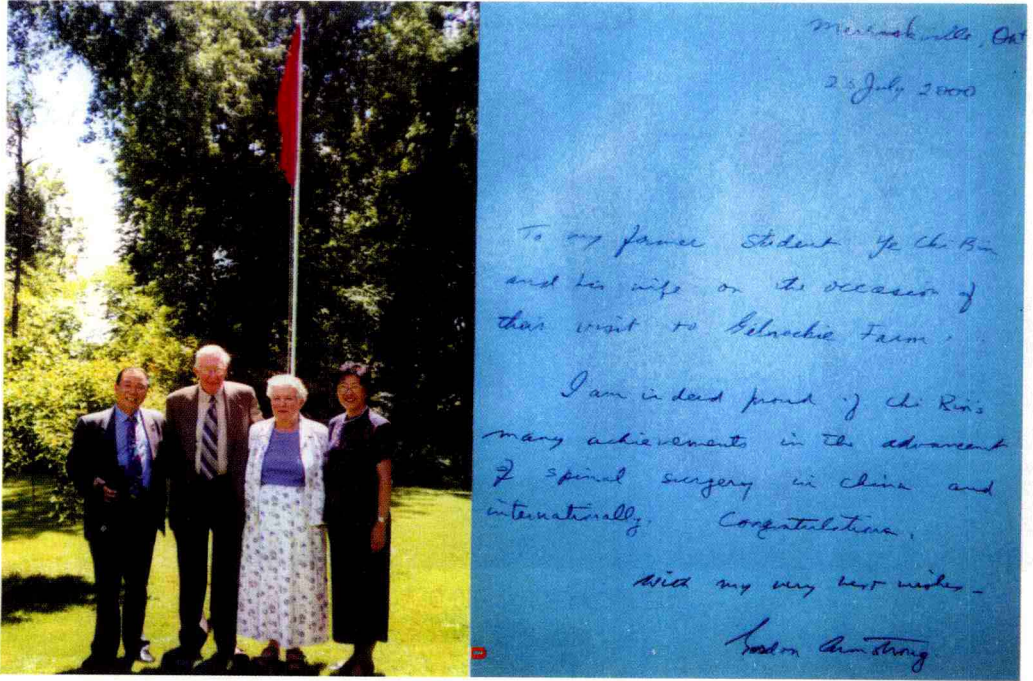 Merrickville, Ont
25 July 2000
To my former student Ye Chi Bin
and his wife on the occasion of
their visit to Farm.
I am indeed proud of Chi Bin's
many achievements in the advancement
of spinal surgery in China and
internationally. Congratulations.
With my very best wishes -
Gordon Armstrong